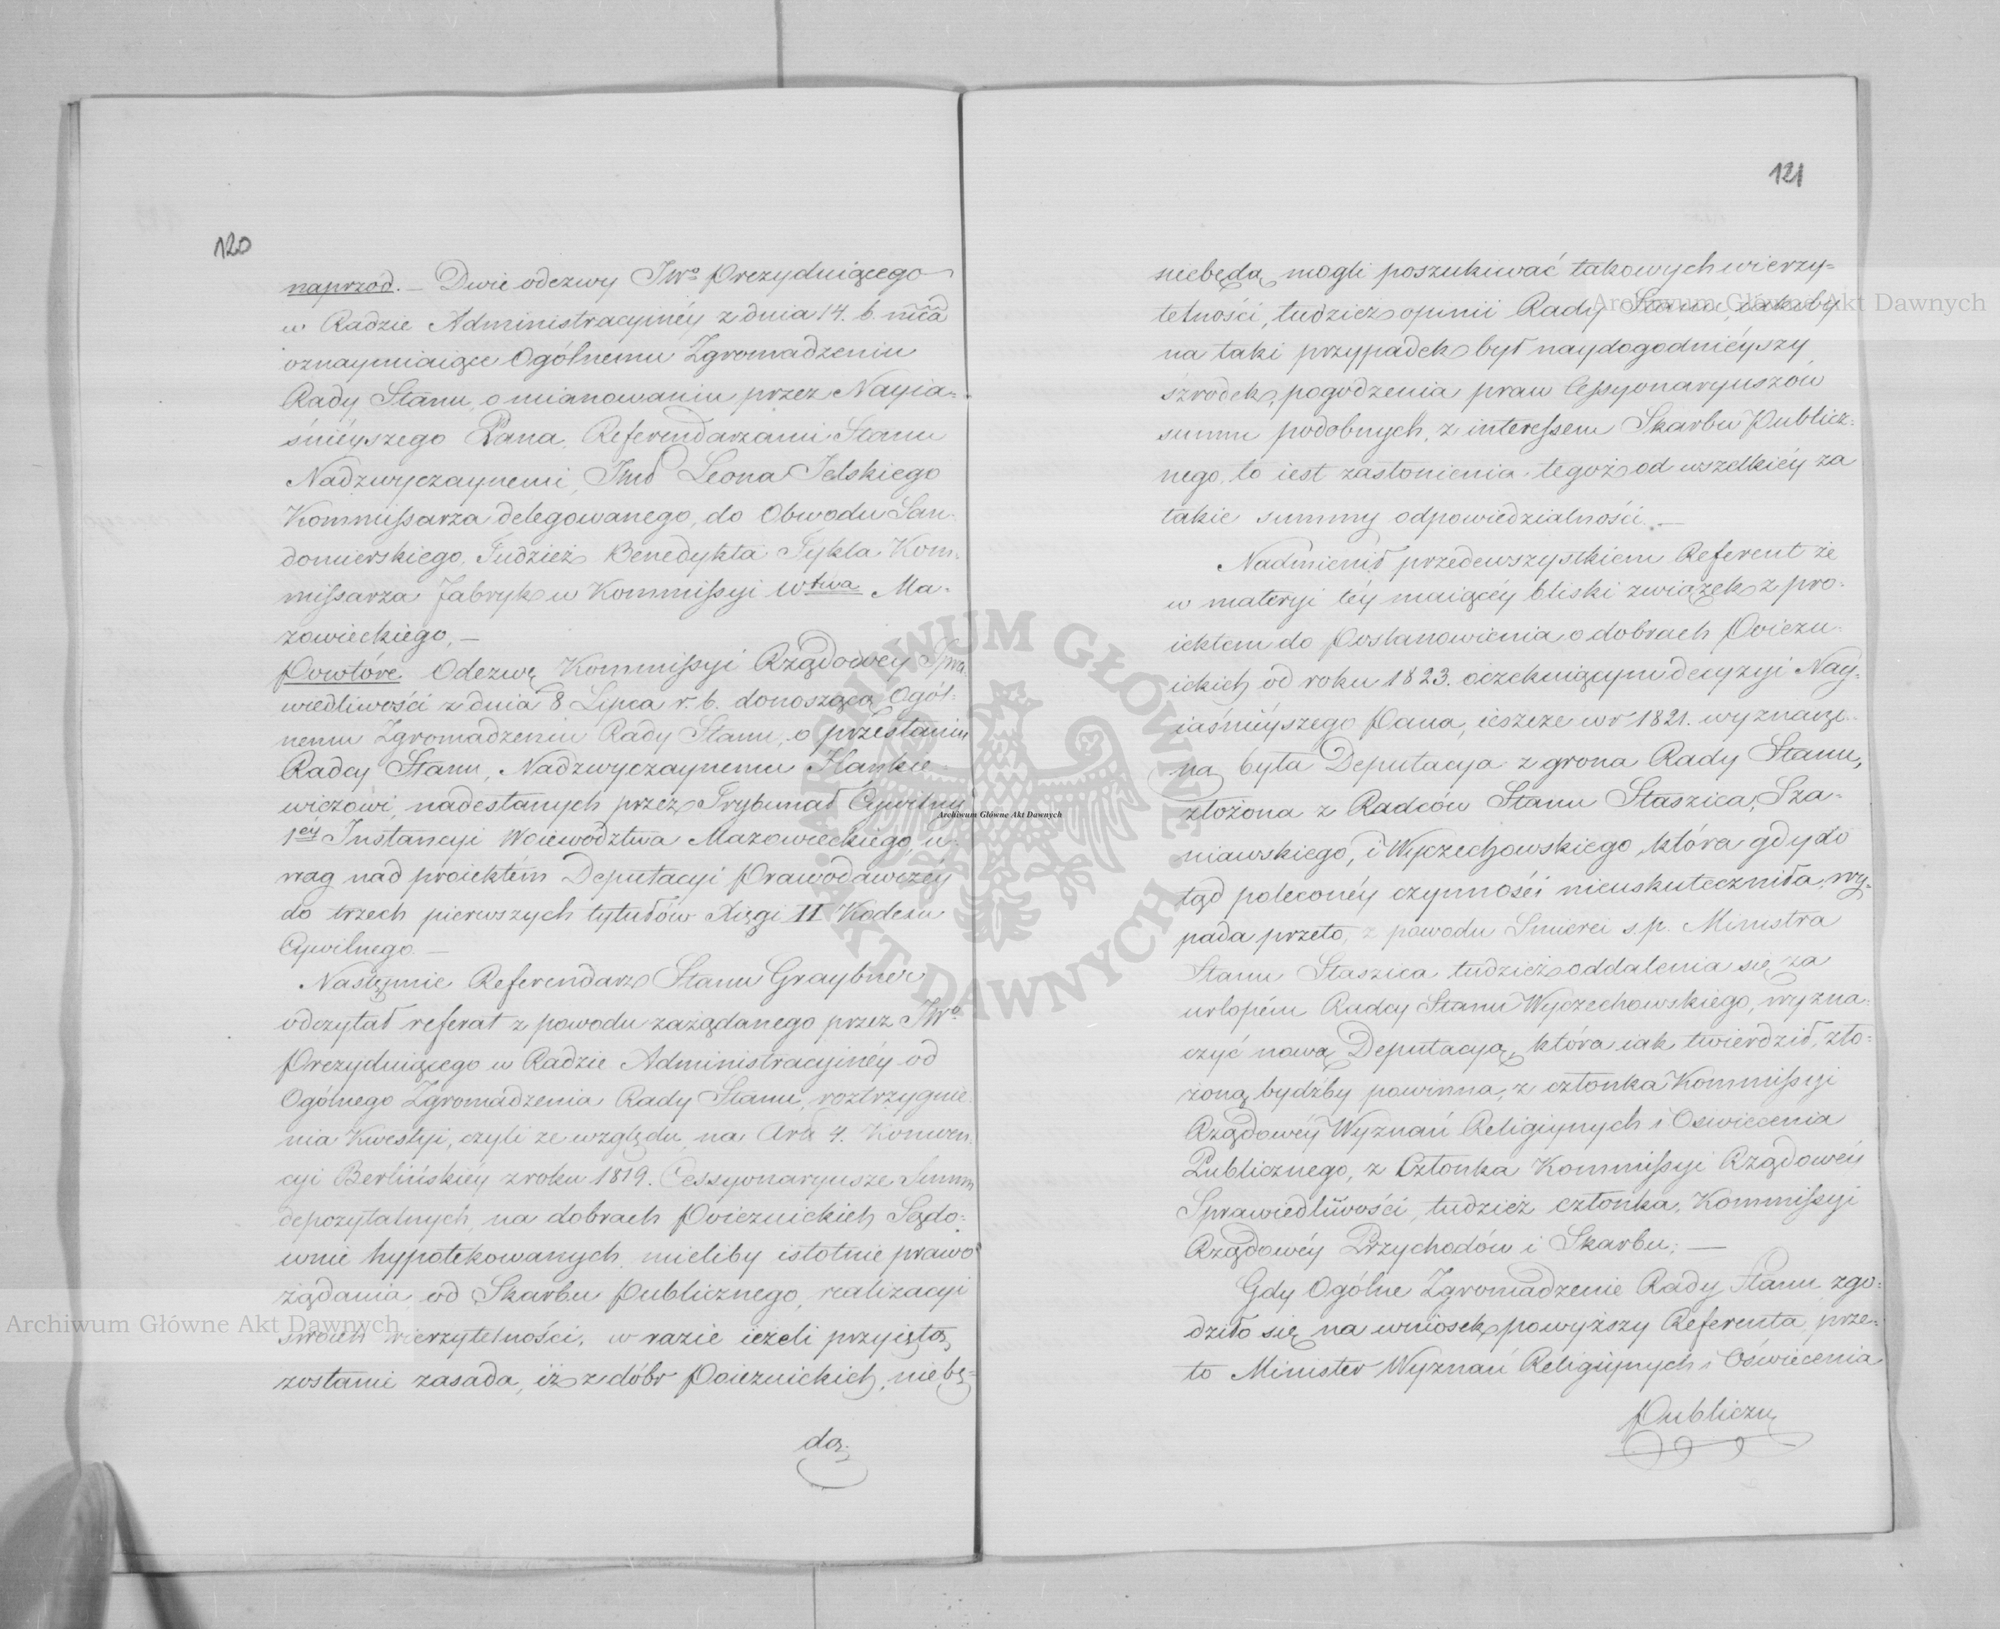 120
naprzód. – Dwie odezwy JWo Prezyduiącego
w Radzie Administracyinéy z dnia 14. b. mca
oznaymiaiące Ogólnemu Zgromadzeniu
Rady Stanu, o mianowaniu przez Nayia-
śnieyszego Pana, Referendarzami Stanu
Nadzwyczaynemi, Leona Jelskiego
Kommissarza delegowanego, do Obwodu San-
domierskiego, Tudzież Benedykta Tykla Kom-
missarza Fabryk w Kommissyi Wtwa Ma-
zowieckiego, –
Powtóre Odezwę Kommissyi Rządowéy Spra
wiedliwości z dnia 8 Lipca r. b. donoszącą Ogól-
nemu Zgromadzeniu Rady Stanu, o przesłaniu
Radcy Stanu, Nadzwyczaynemu Hankie-
wiczowi, nadesłanych przez Trybunał Cywilny
1éy Instancyi Woiewództwa Mazowieckiego, u-
wag nad proiektém Deputacyi Prawodawczéy
do trzech pierwszych tytułów Xięgi II Kodexu
Cywilnego. –
Następnie Referendarz Stanu Graybner
odczytał referat z powodu zażądanego przez JWo
Prezyduiącego w Radzie Administracyinéy od
Ogólnego Zgromadzenia Rady Stanu, roztrzygnie
nia Kwestyi, czyli ze względu na Art 4. Konwen
cyi Berlińskiéy z roku 1819. Cessyonaryusze Summ
depozytalnych, na dobrach Poiezuickich Sądo-
wnie hypotekowanych, mieliby istotnie prawo
żądania od Skarbu Publicznego, realizacyi
swoich wierzytelności, w razie ieżeli przyiętą
zostanie zasada, iż z dóbr Poiezuickich, nie bę-
dą
121
niebędą mogli poszukiwać takowych wierzy-
telności, tudzież opinii Rady Stanu, iakiby
na taki przypadek był naydogodniéyszy
szrodek, pogodzenia praw Cessyonaryuszów
summ podobnych, z interessem Skarbu Publicz-
nego, to iest zasłonienia tegoż od wszelkiéy za
takie summy odpowiedzialności. –
Nadmienił przedewszystkiem Referent że
w materyi téy maiącéy bliski związek z pro-
iektem do Postanowienia o dobrach Poiezu-
ickich od roku 1823. oczekuiącym decyzyi Nay-
iaśnieyszego Pana, ieszcze w r 1821. wyznaczo-
ną była Deputacya z grona Rady Stanu,
złożona z Radców Stanu Staszica, Sza-
niawskiego, i Wyczechowskiego, która gdy do
tąd poleconéy czynności nieuskuteczniła, wy-
pada przeto, z powodu Smierci s.p. Ministra
Stanu Staszica tudzież oddalenia się za
urlopém Radcy Stanu Wyczechowskiego, wyzna-
czyć nową Deputacyą, która iak twierdził, zło-
żoną bydźby powinna, z członka Kommissyi
Rządowéy Wyznań Religiynych i Oswiecenia
Publicznego, z Członka Kommissyi Rządowéy
Sprawiedliwości, tudzież członka, Kommissyi
Rządowéy Przychodów i Skarbu; –
Gdy Ogólne Zgromadzenie Rady Stanu zgo-
dziło się na wniosek powyższy Referenta, prze-
to Minister Wyznań Religiynych i Oświecenia
Publiczn
Archiwum Główne Akt Dawnych
Archiwum Główne Akt Dawnych
Archiwum Główne Akt Dawnych
ARCHIWUM GŁÓWNE AKT DAWNYCH